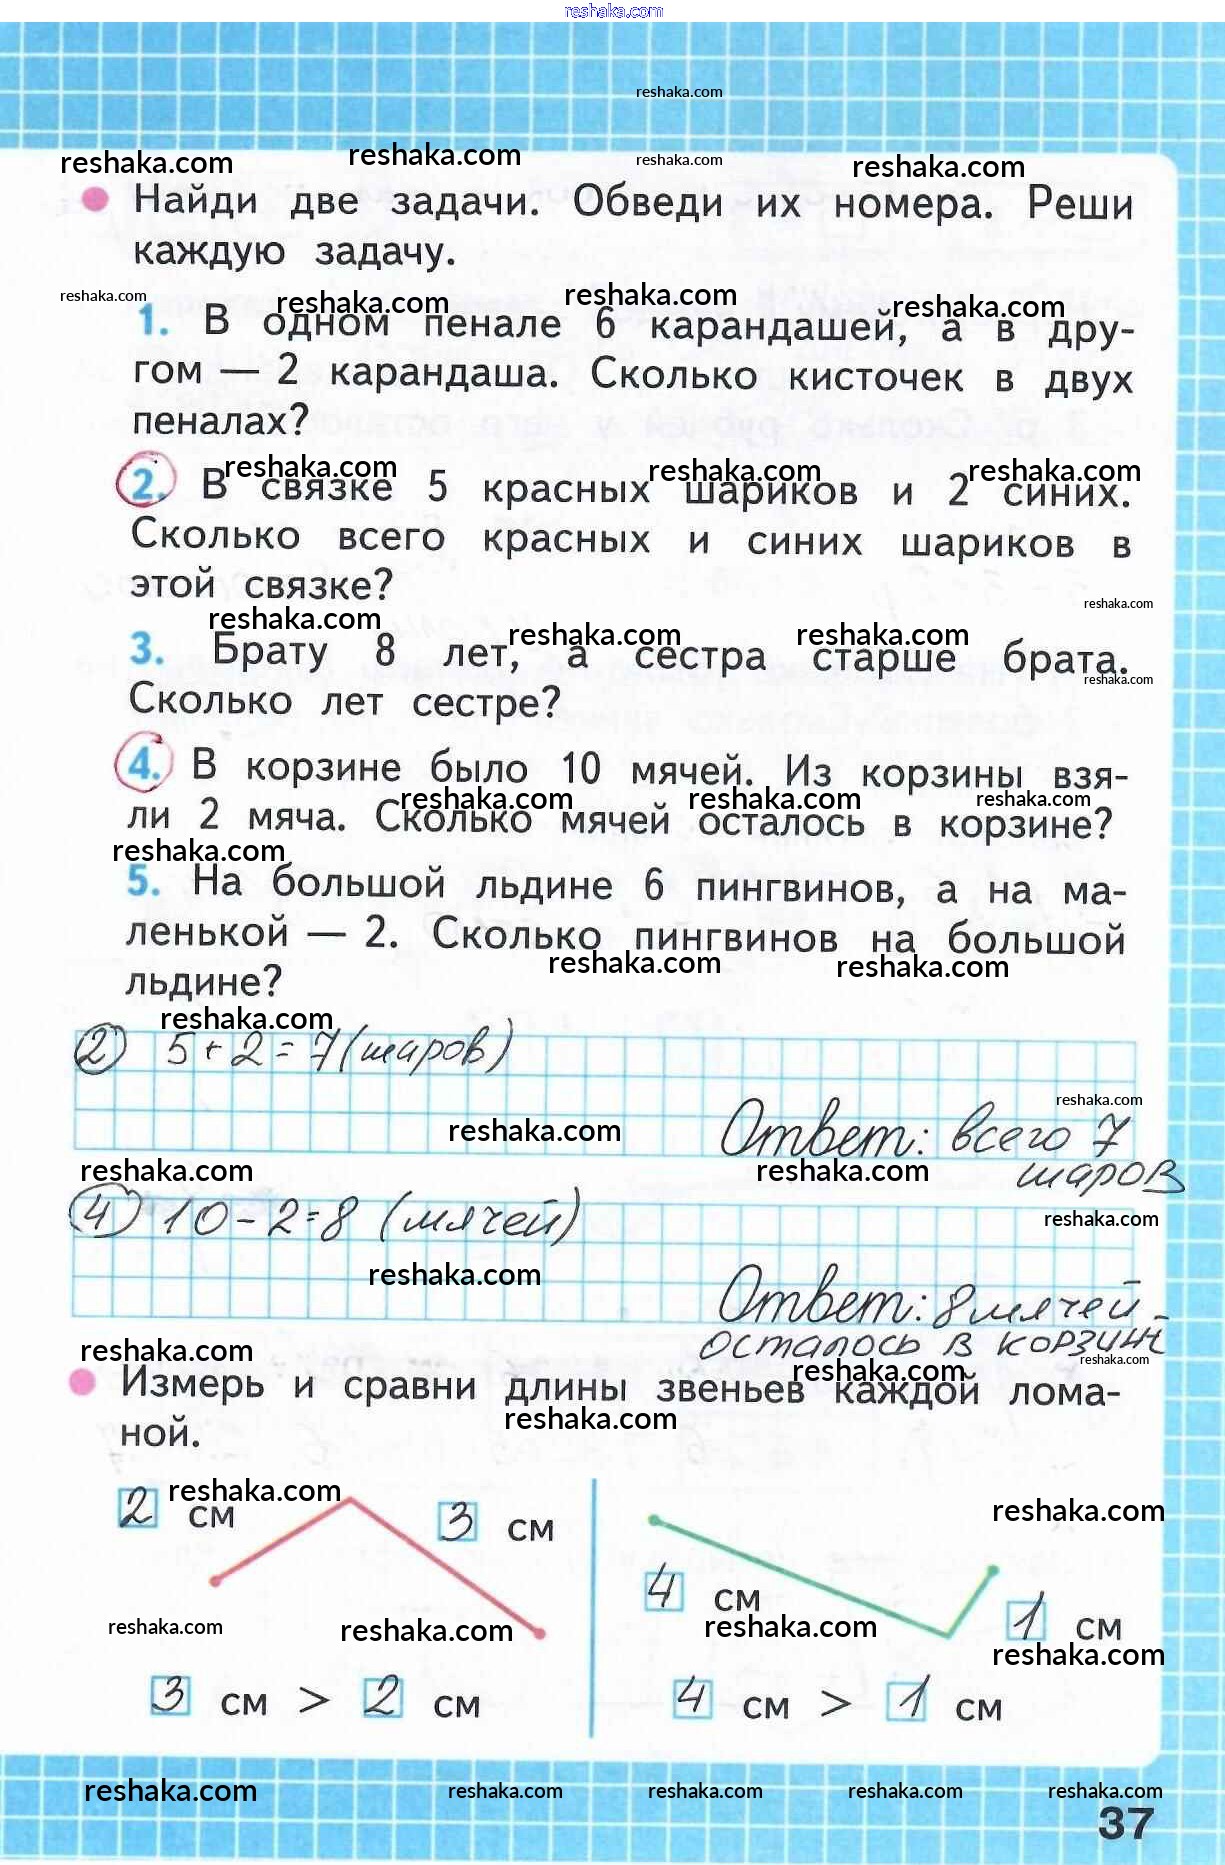 reshaka.com
reshaka.com
reshaka.com reshaka.com reshaka.com reshaka.com
Найди две задачи. Обведи их номера. Реши
каждую задачу.
reshaka.com reshaka.com reshaka.com reshaka.com
1. В одном пенале 6 карандашей, а в дру-
гом — 2 карандаша. Сколько кисточек в двух
пеналах?
reshaka.com reshaka.com reshaka.com
2. В связке 5 красных шариков и 2 синих.
Сколько всего красных и синих шариков в
этой связке?
reshaka.com
reshaka.com reshaka.com reshaka.com
3. Брату 8 лет, а сестра старше брата.
reshaka.com
Сколько лет сестре?
4. В корзине было 10 мячей. Из корзины взя-
reshaka.com reshaka.com reshaka.com
ли 2 мяча. Сколько мячей осталось в корзине?
reshaka.com
5. На большой льдине 6 пингвинов, а на ма-
ленькой — 2. Сколько пингвинов на большой
reshaka.com reshaka.com
льдине?
reshaka.com
2) 5 + 2 = 7 (шаров)
reshaka.com
reshaka.com
Ответ: всего 7
reshaka.com reshaka.com
шаров
4) 10 - 2 = 8 (мячей)
reshaka.com
reshaka.com
Ответ: 8 мячей
осталось в корзине
reshaka.com reshaka.com reshaka.com
Измерь и сравни длины звеньев каждой лома-
reshaka.com
ной.
reshaka.com reshaka.com
2 см 3 см
4 см 1 см
reshaka.com reshaka.com reshaka.com reshaka.com
3 см > 2 см 4 см > 1 см
reshaka.com reshaka.com reshaka.com reshaka.com reshaka.com
37